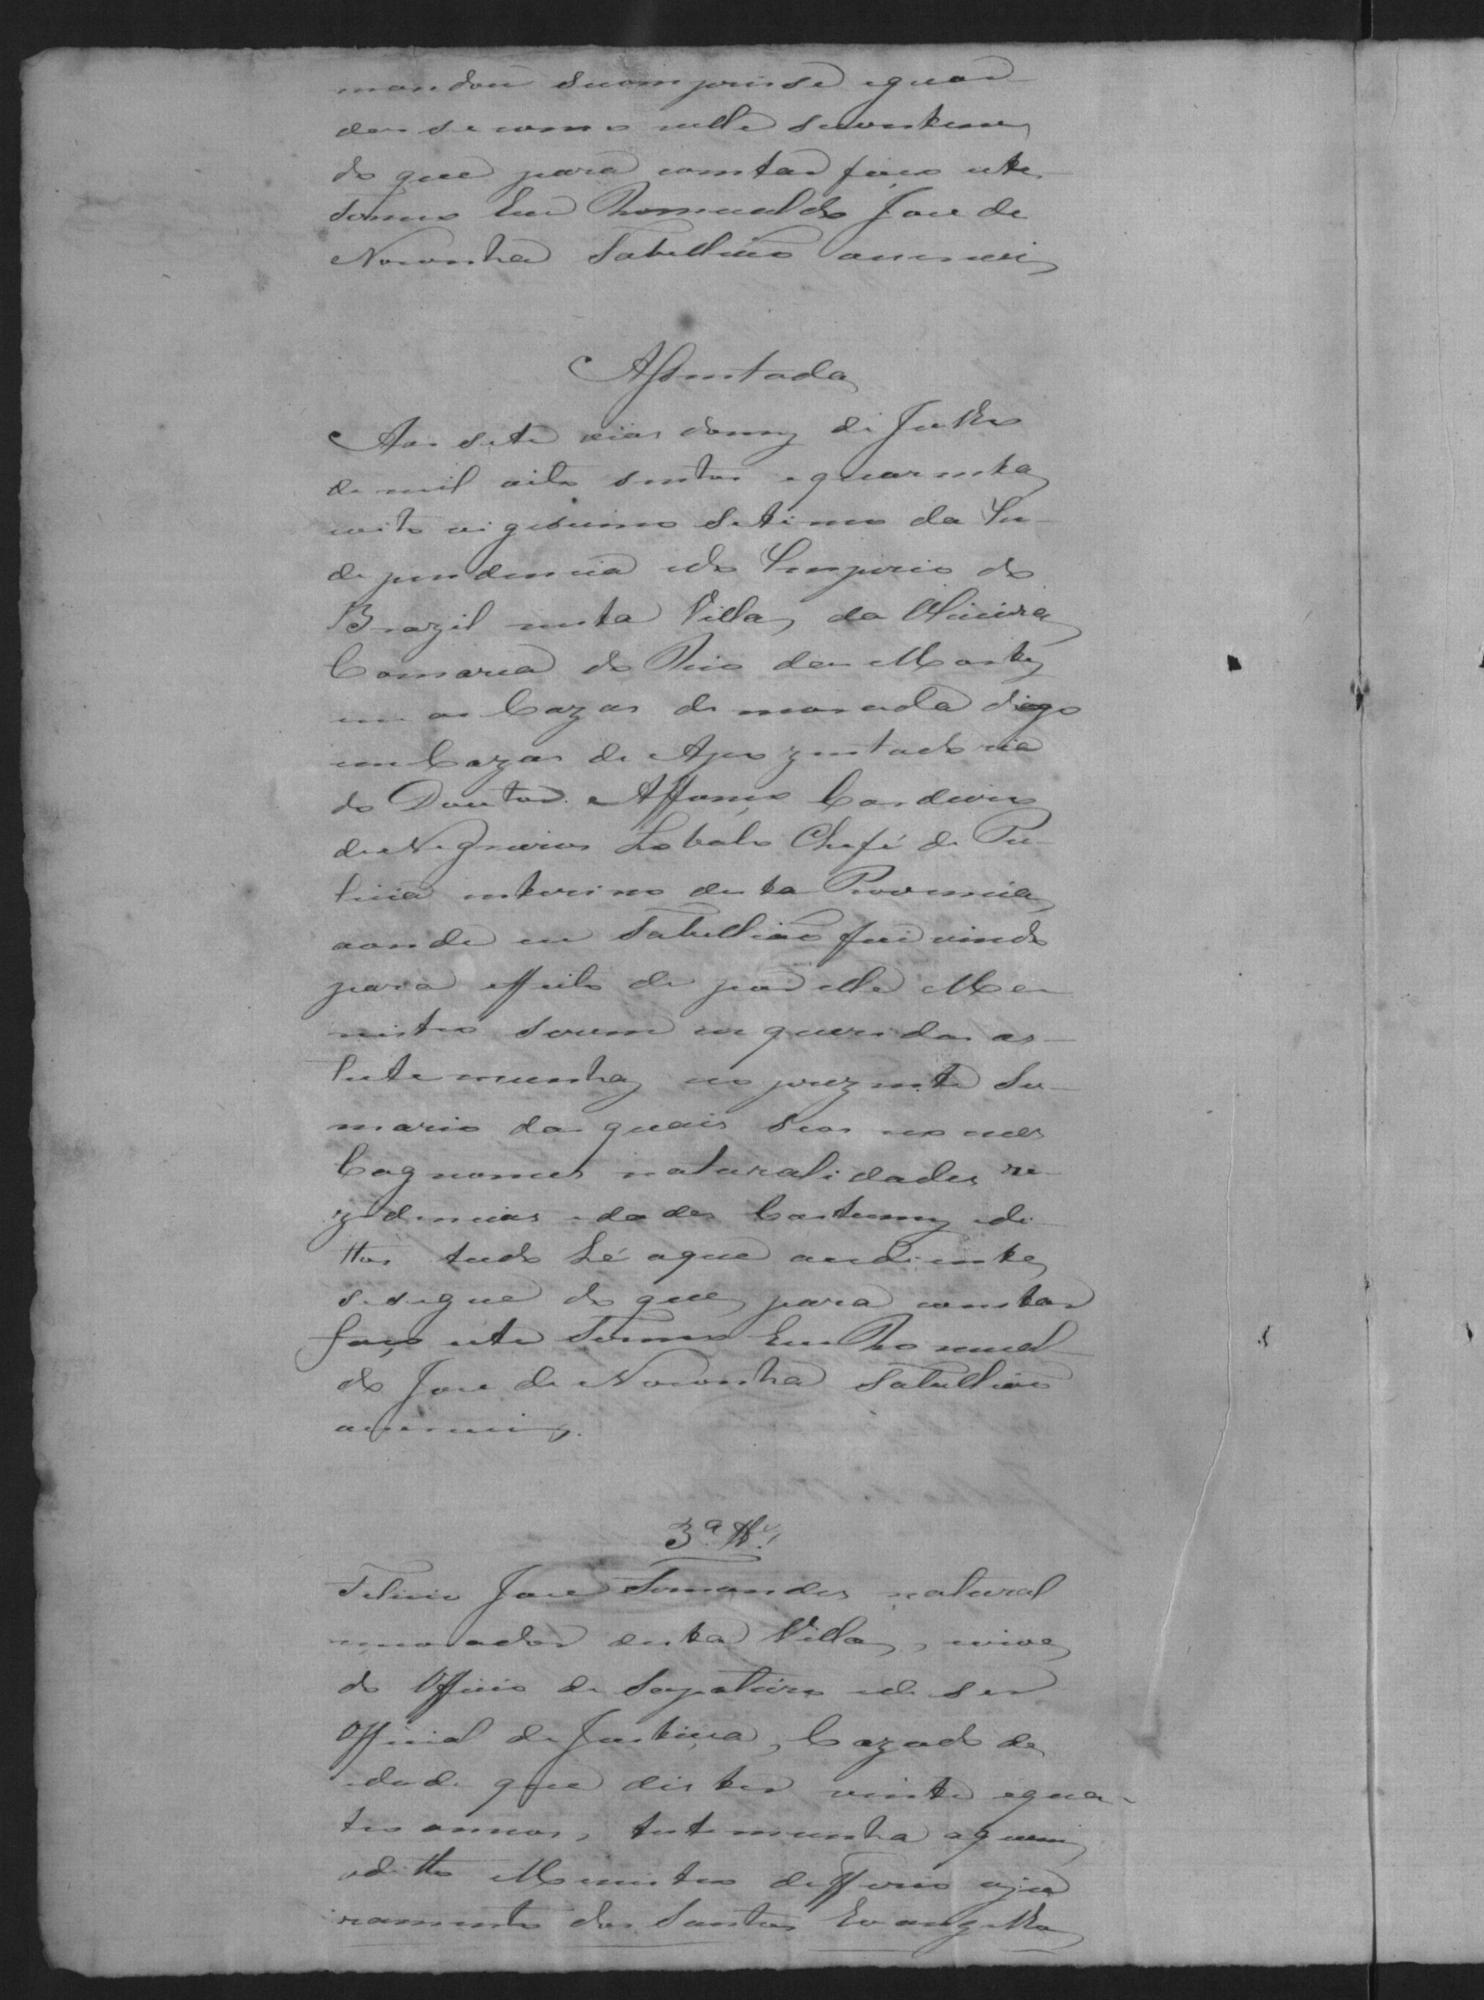 mandou secomprisse eguar
dasse como nelle secontem
do que para constar faço este
termo Eu Romualdo Jose de
Noronha Tabellião oescrevi
Assentada
Aos sete dias domez de Julho
de mil oito sentos equarenta
oito vigesimo setimo da In-
dependencia edo Imperio do
Brazil nesta Villa da Oliveira
Comarca do Rio das Mortes
em as Cazas de morada digo
em Cazas de Apozentadoria
do Doutor Affonço Cordeiro
de Negreiros Lobato Chefe de Pu-
licia interino desta Provincia
aonde eu Tabellião fui vindo
para effeito de por elle Me-
nistro serem enqueridas as
testemunhas no prezente Su-
mario das quais seos nomes
Cognomes naturalidades re-
zidencias edades Costumes edi
ttos tudo hé aque aodiente
sesegue do que para constar
faço este Termo Eu Romual-
do Jose de Noronha Tabellião
oescrevi.
3ª Ttª
Felicio Jose Fernandes natural
morador desta Villa, vive
do Officio de Sapateiro ede ser
Official de Justiça, Cazado de
edade que disse ter vinte equa-
tro annos, testemunha aquem
oditto Menistro defferio oju
ramento dos Santos Evangelhos